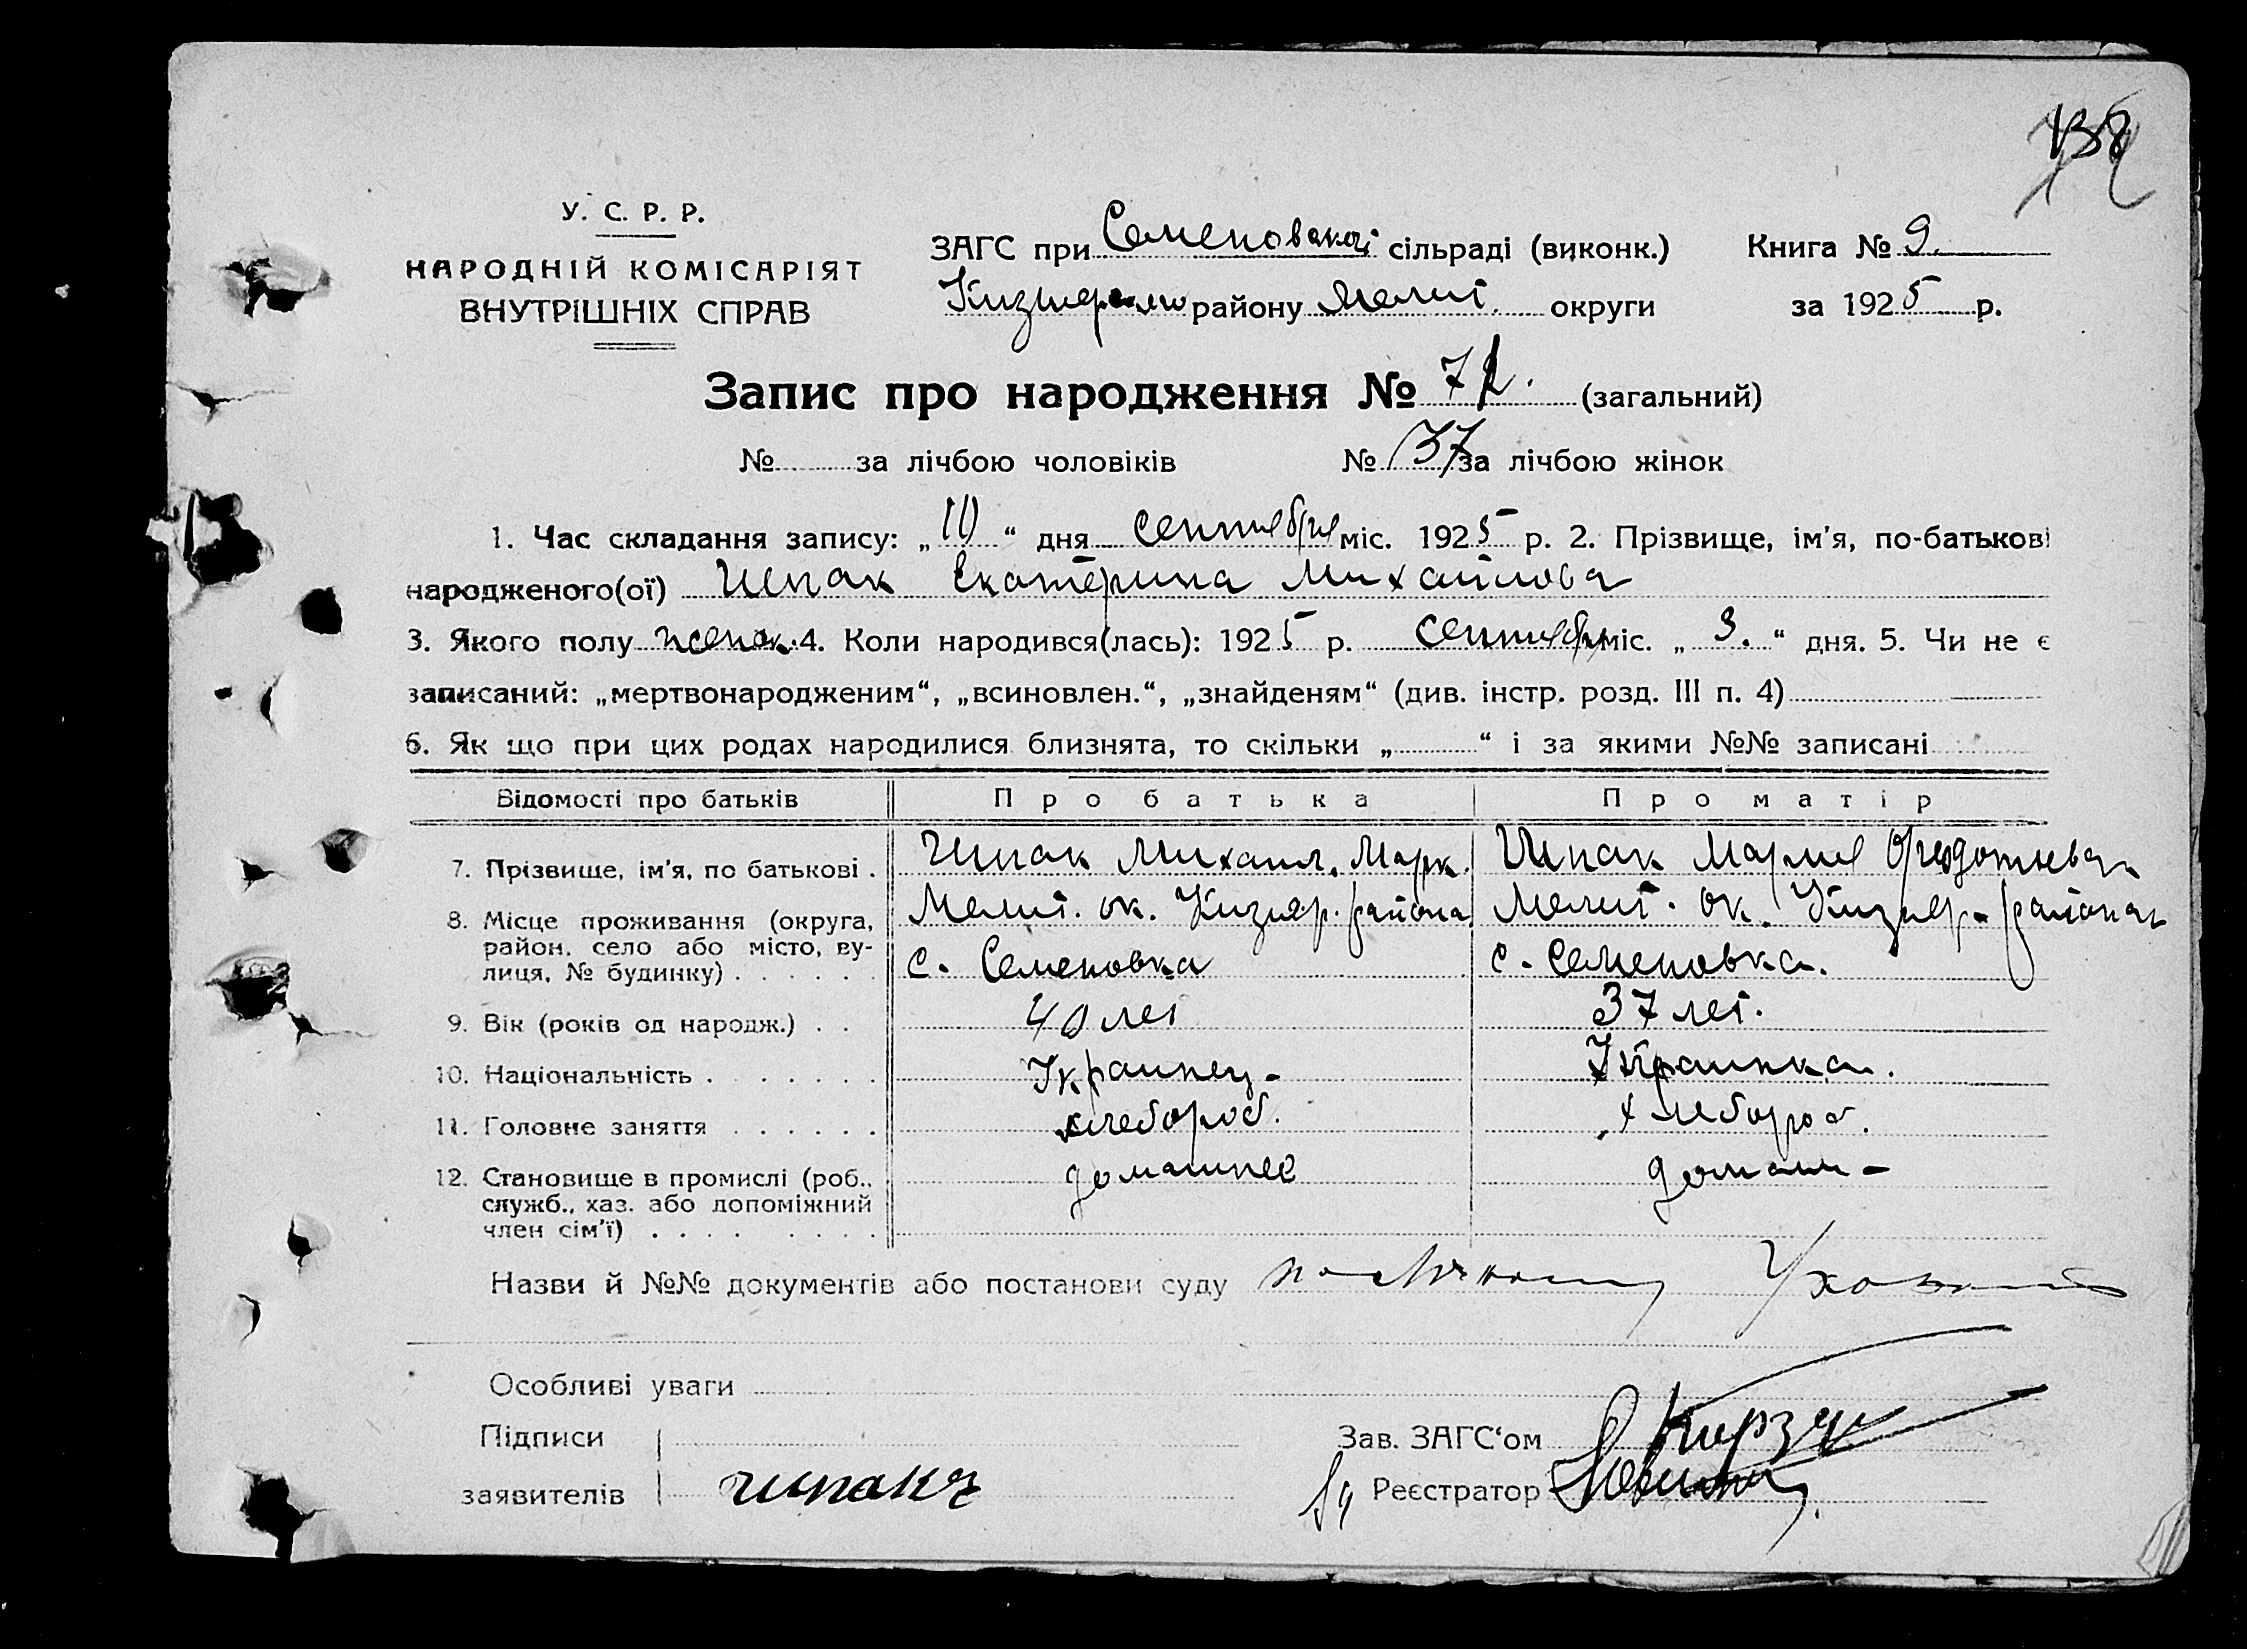 138
У. С. Р. Р.
НАРОДНІЙ КОМІСАРІЯТ
ВНУТРІШНІХ СПРАВ
ЗАГС при Семеновской сільраді (виконк.) Книга № 9.
району Мелит. округи за 1925 р.
Запис про народження № 72. (загальний)
№ за лічбою чоловіків № 37 за лічбою жінок
1. Час складання запису: „10“ дня сентября міс. 1925 р. 2. Прізвище, ім'я, по-батькові
народженого(ої) Шпак Екатерина Михайлова
3. Якого полу женск. 4. Коли народився(лась): 1925 р. сентября міс. „3.“ дня. 5. Чи не є
записаний: „мертвонародженим“, „всиновлен.“, „знайденям“ (див. інстр. розд. III п. 4)
6. Як що при цих родах народилися близнята, то скільки „ “ і за якими №№ записані
Відомості про батьків Про батька Про матір
7. Прізвище, ім'я, по батькові . Шпак Михаил. Марк. Шпак Мария Федотьева
8. Місце проживання (округа, Мелит. ок. Кизияр. района Мелит. ок. Кизияр. района
район, село або місто, ву-
лиця, № будинку) . . . . . . с. Семеновка с. Семеновка.
9. Вік (років од народж.) . . 40 лет 37 лет.
10. Національність . . . . . . . Украинец. Украинка.
11. Головне заняття . . . . . . хлебороб. хлебороб.
12. Становище в промислі (роб., домашнее домашн-
служб., хаз. або допоміжний
член сім'ї) . . . . . . . .
Назви й №№ документів або постанови суду
Особливі уваги
Підписи Зав. ЗАГС‘ом
заявителів Шпакъ Реєстратор